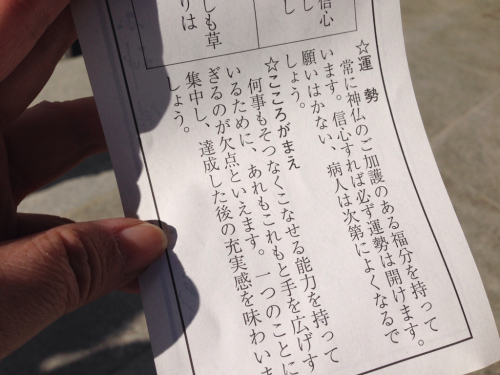 信心
し
しも草
りは
☆運　勢
常に神仏のご加護のある福分を持って
います。信心すれば必ず運勢は開けます。
願いはかない、病人は次第によくなるで
しょう。
☆こころがまえ
何事もそつなくこなせる能力を持って
いるために、あれもこれもと手を広げす
ぎるのが欠点といえます。一つのことに
集中し、達成した後の充実感を味わいま
しょう。